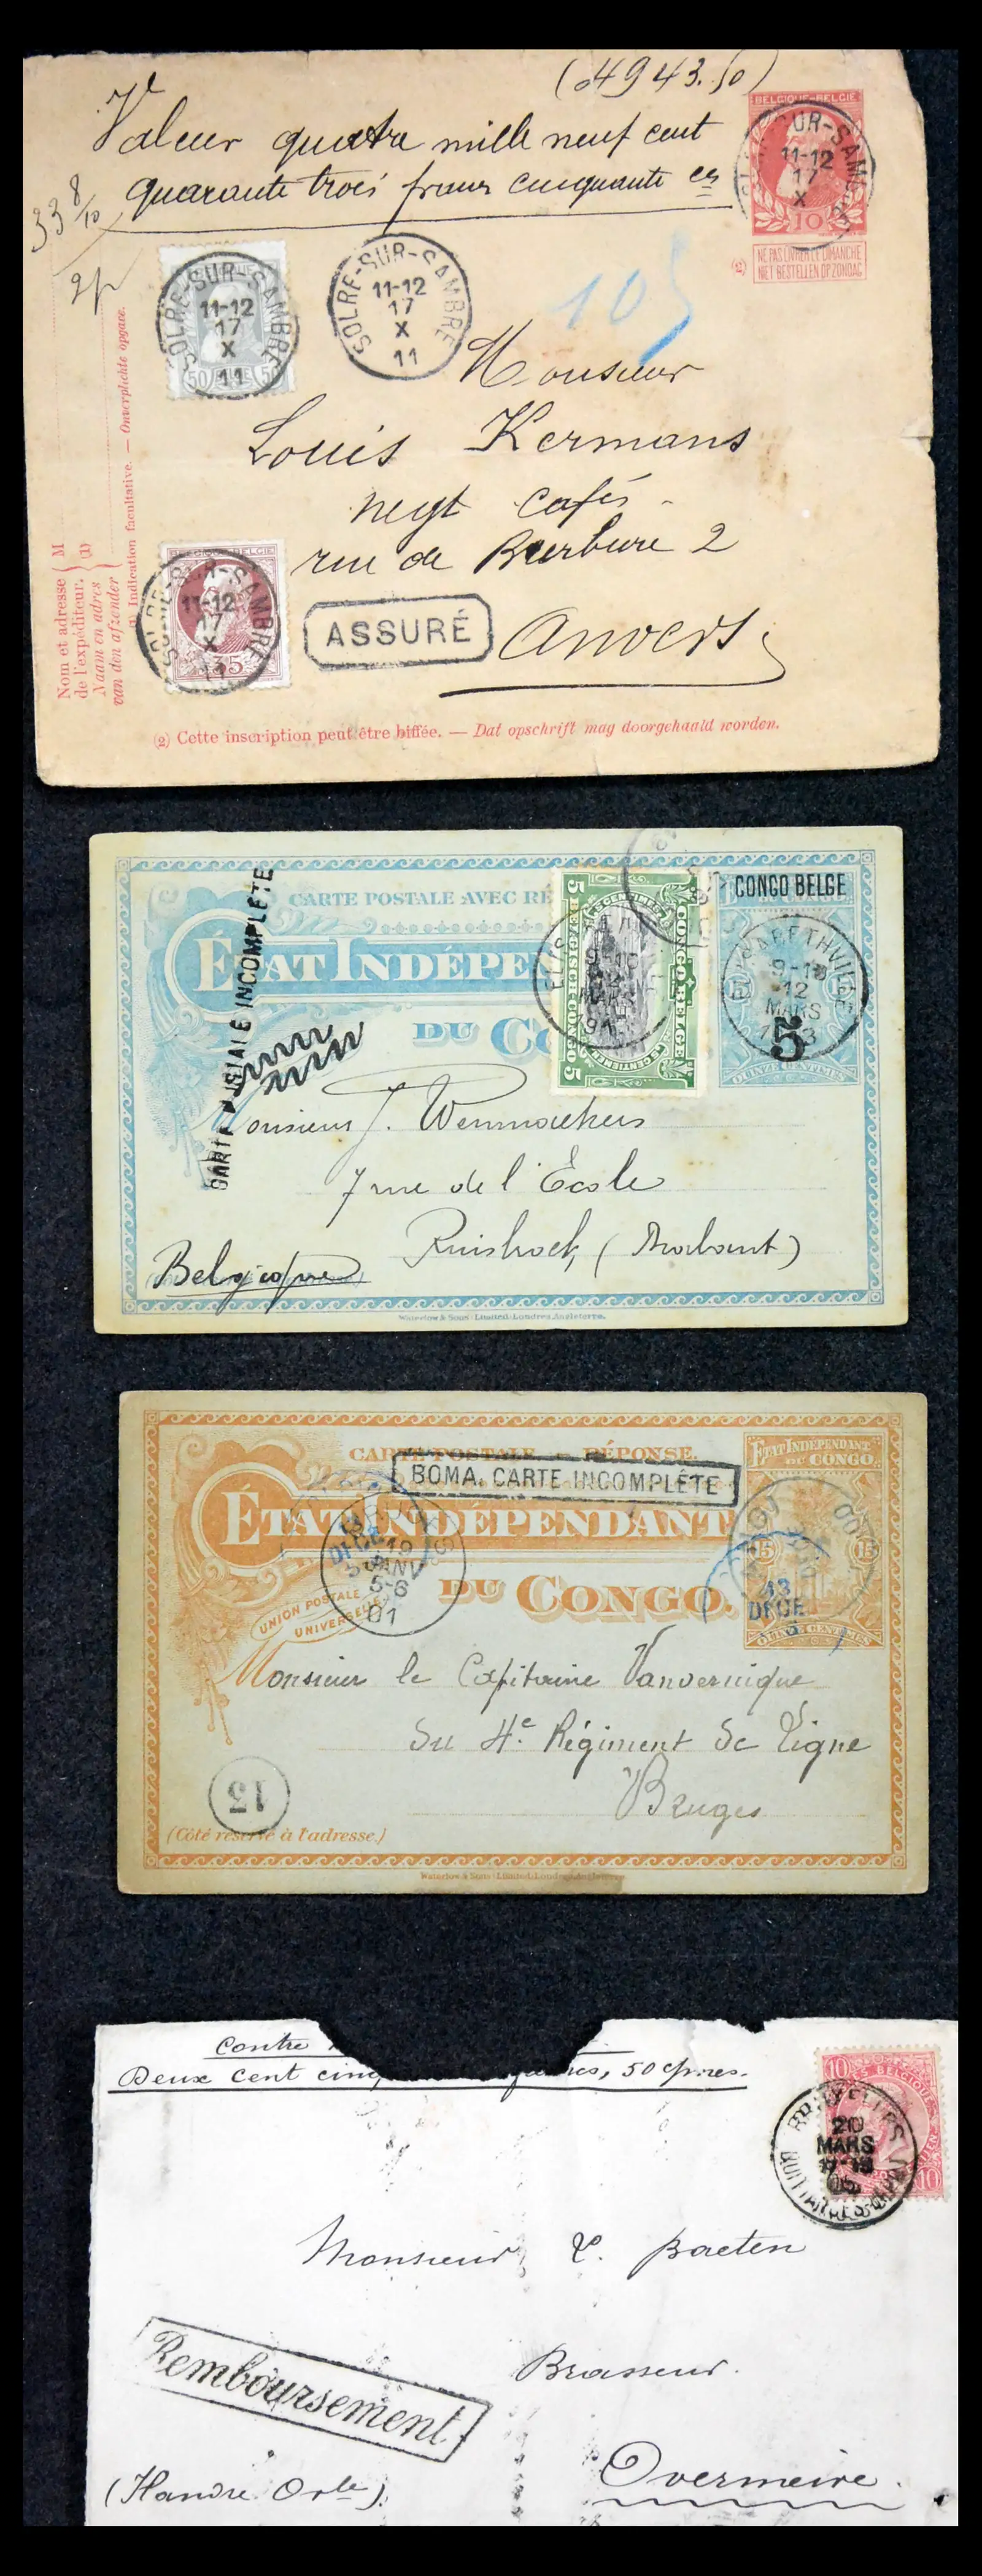 (4943.50)
Valeur quatre mille neuf cent
quarante trois francs cinquante ces
33 8/10
2p
BELGIQUE-BELGIE
10
SUR-SAMBRE
11-12
17
X
(2) NE PAS LIVRER LE DIMANCHE
NIET BESTELLEN OP ZONDAG
SOLRE-SUR-SAMBRE
11-12
17
X
11
50 50
SOLRE-SUR-SAMBRE
11-12
17
X
11
105
Monsieur
Louis Kermans
negt cafés
rue de Burbure 2
Anvers
BELGIQUE-BELGIE
SUR-SAMBRE
11-12
17
X
11
35
ASSURÉ
Nom et adresse de l'expéditeur. M
Naam en adres van den afzender (1)
(1) Indication facultative. — Onverplichte opgave.
(2) Cette inscription peut être biffée. — Dat opschrift mag doorgehaald worden.
CARTE POSTALE AVEC RÉ
ÉTAT INDÉPEN
DU CO
CONGO BELGE
15 15
QUINZE CENTIMES
5
ELISABETHVILLE
9-10
12
MARS
CONGO BELGE
5 CENTIEMEN
BELGISCH CONGO
5 5
9-10
MARS
CARTE POSTALE INCOMPLETE
Monsieur J. Wennmackers
7 rue de l'École
Ruisbroek (Brabant)
Belgique
Waterlow & Sons Limited, Londres, Angleterre.
CARTE POSTALE — RÉPONSE.
BOMA. CARTE INCOMPLÈTE
ÉTAT INDÉPENDANT
DU CONGO.
ÉTAT INDÉPENDANT
DU CONGO
15 15
QUINZE CENTIMES
13
DECE
BRUGES
19
JANV
5-6
01
UNION POSTALE
UNIVERSELLE
Monsieur le Capitaine Vanvernique
du 4e Régiment de Ligne
Bruges
13
(Côté réservé à l'adresse.)
Waterlow & Sons Limited, Londres
Contre
Deux cent cinq
, 50 c
10
BELGIQUE
10
BRUXELLES
20
MARS
05
Monsieur Baeten
Brasseur.
Remboursement
Overmeire.
(Flandre Orle).